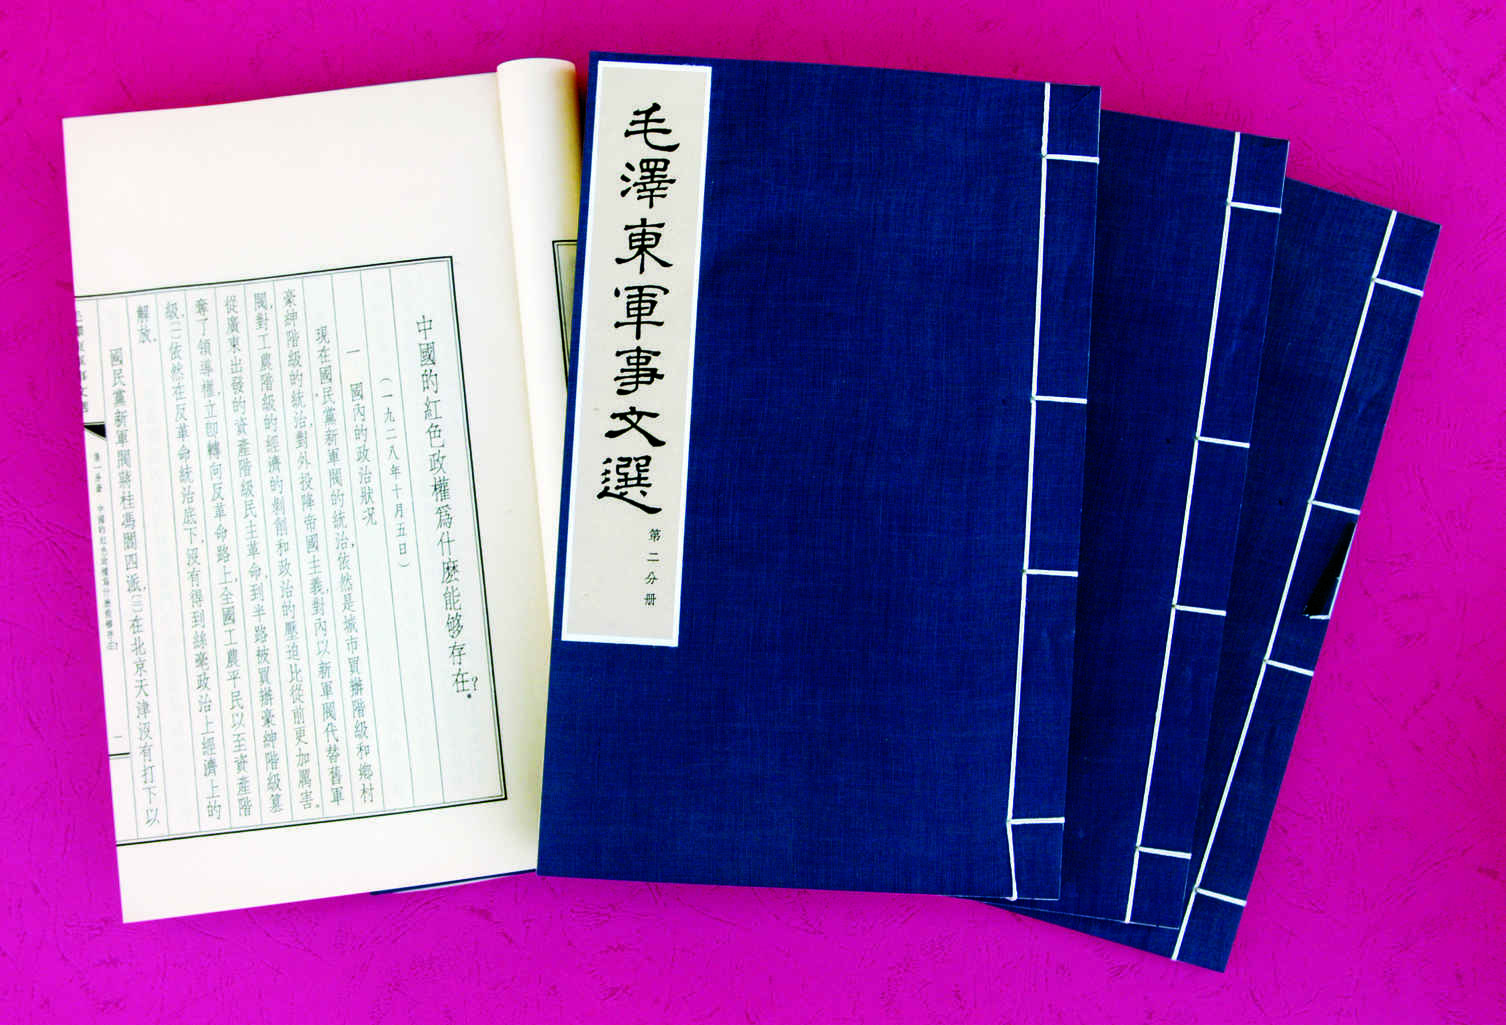 中國的紅色政權爲什麽能够存在？
（一九二八年十月五日）
一　國內的政治狀况
現在國民黨新軍閥的統治，依然是城市買辦階級和鄉村
豪紳階級的統治，對外投降帝國主義，對內以新軍閥代替舊軍
閥，對工農階級的經濟的剥削和政治的壓迫比從前更加厲害。
從廣東出發的資產階級民主革命，到半路被買辦豪紳階級篡
奪了領導權，立即轉向反革命路上，全國工農平民以至資產階
級，〔一〕依然在反革命統治底下，沒有得到絲毫政治上經濟上的
解放。
國民黨新軍閥蔣桂馮閻四派，〔二〕在北京天津沒有打下以
毛澤東軍事文選
第一分册　中國的紅色政權爲什麽能够存在？
一
毛澤東軍事文選
第二分册